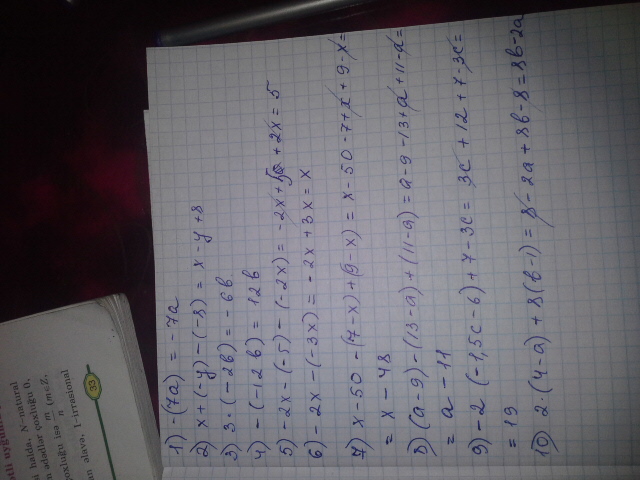 1) -(7a) = -7a
2) x+(-y)-(-8) = x-y+8
3) 3·(-2b) = -6b
4) -(-12b) = 12b
5) -2x-(-5)-(-2x) = -2x+5+2x = 5
6) -2x-(-3x) = -2x+3x = x
7) x-50-(7-x)+(9-x) = x-50-7+x+9-x=
= x-48
8) (a-9)-(13-a)+(11-a) = a-9-13+a+11-a=
= a-11
9) -2(-1,5c-6)+7-3c = 3c+12+7-3c=
= 19
10) 2·(4-a)+8(b-1) = 8-2a+8b-8 = 8b-2a
halda, N-natural
ədədlər çoxluğu
çoxluğu isə m/n (m∈Z,
əlavə, I-irrasional
33